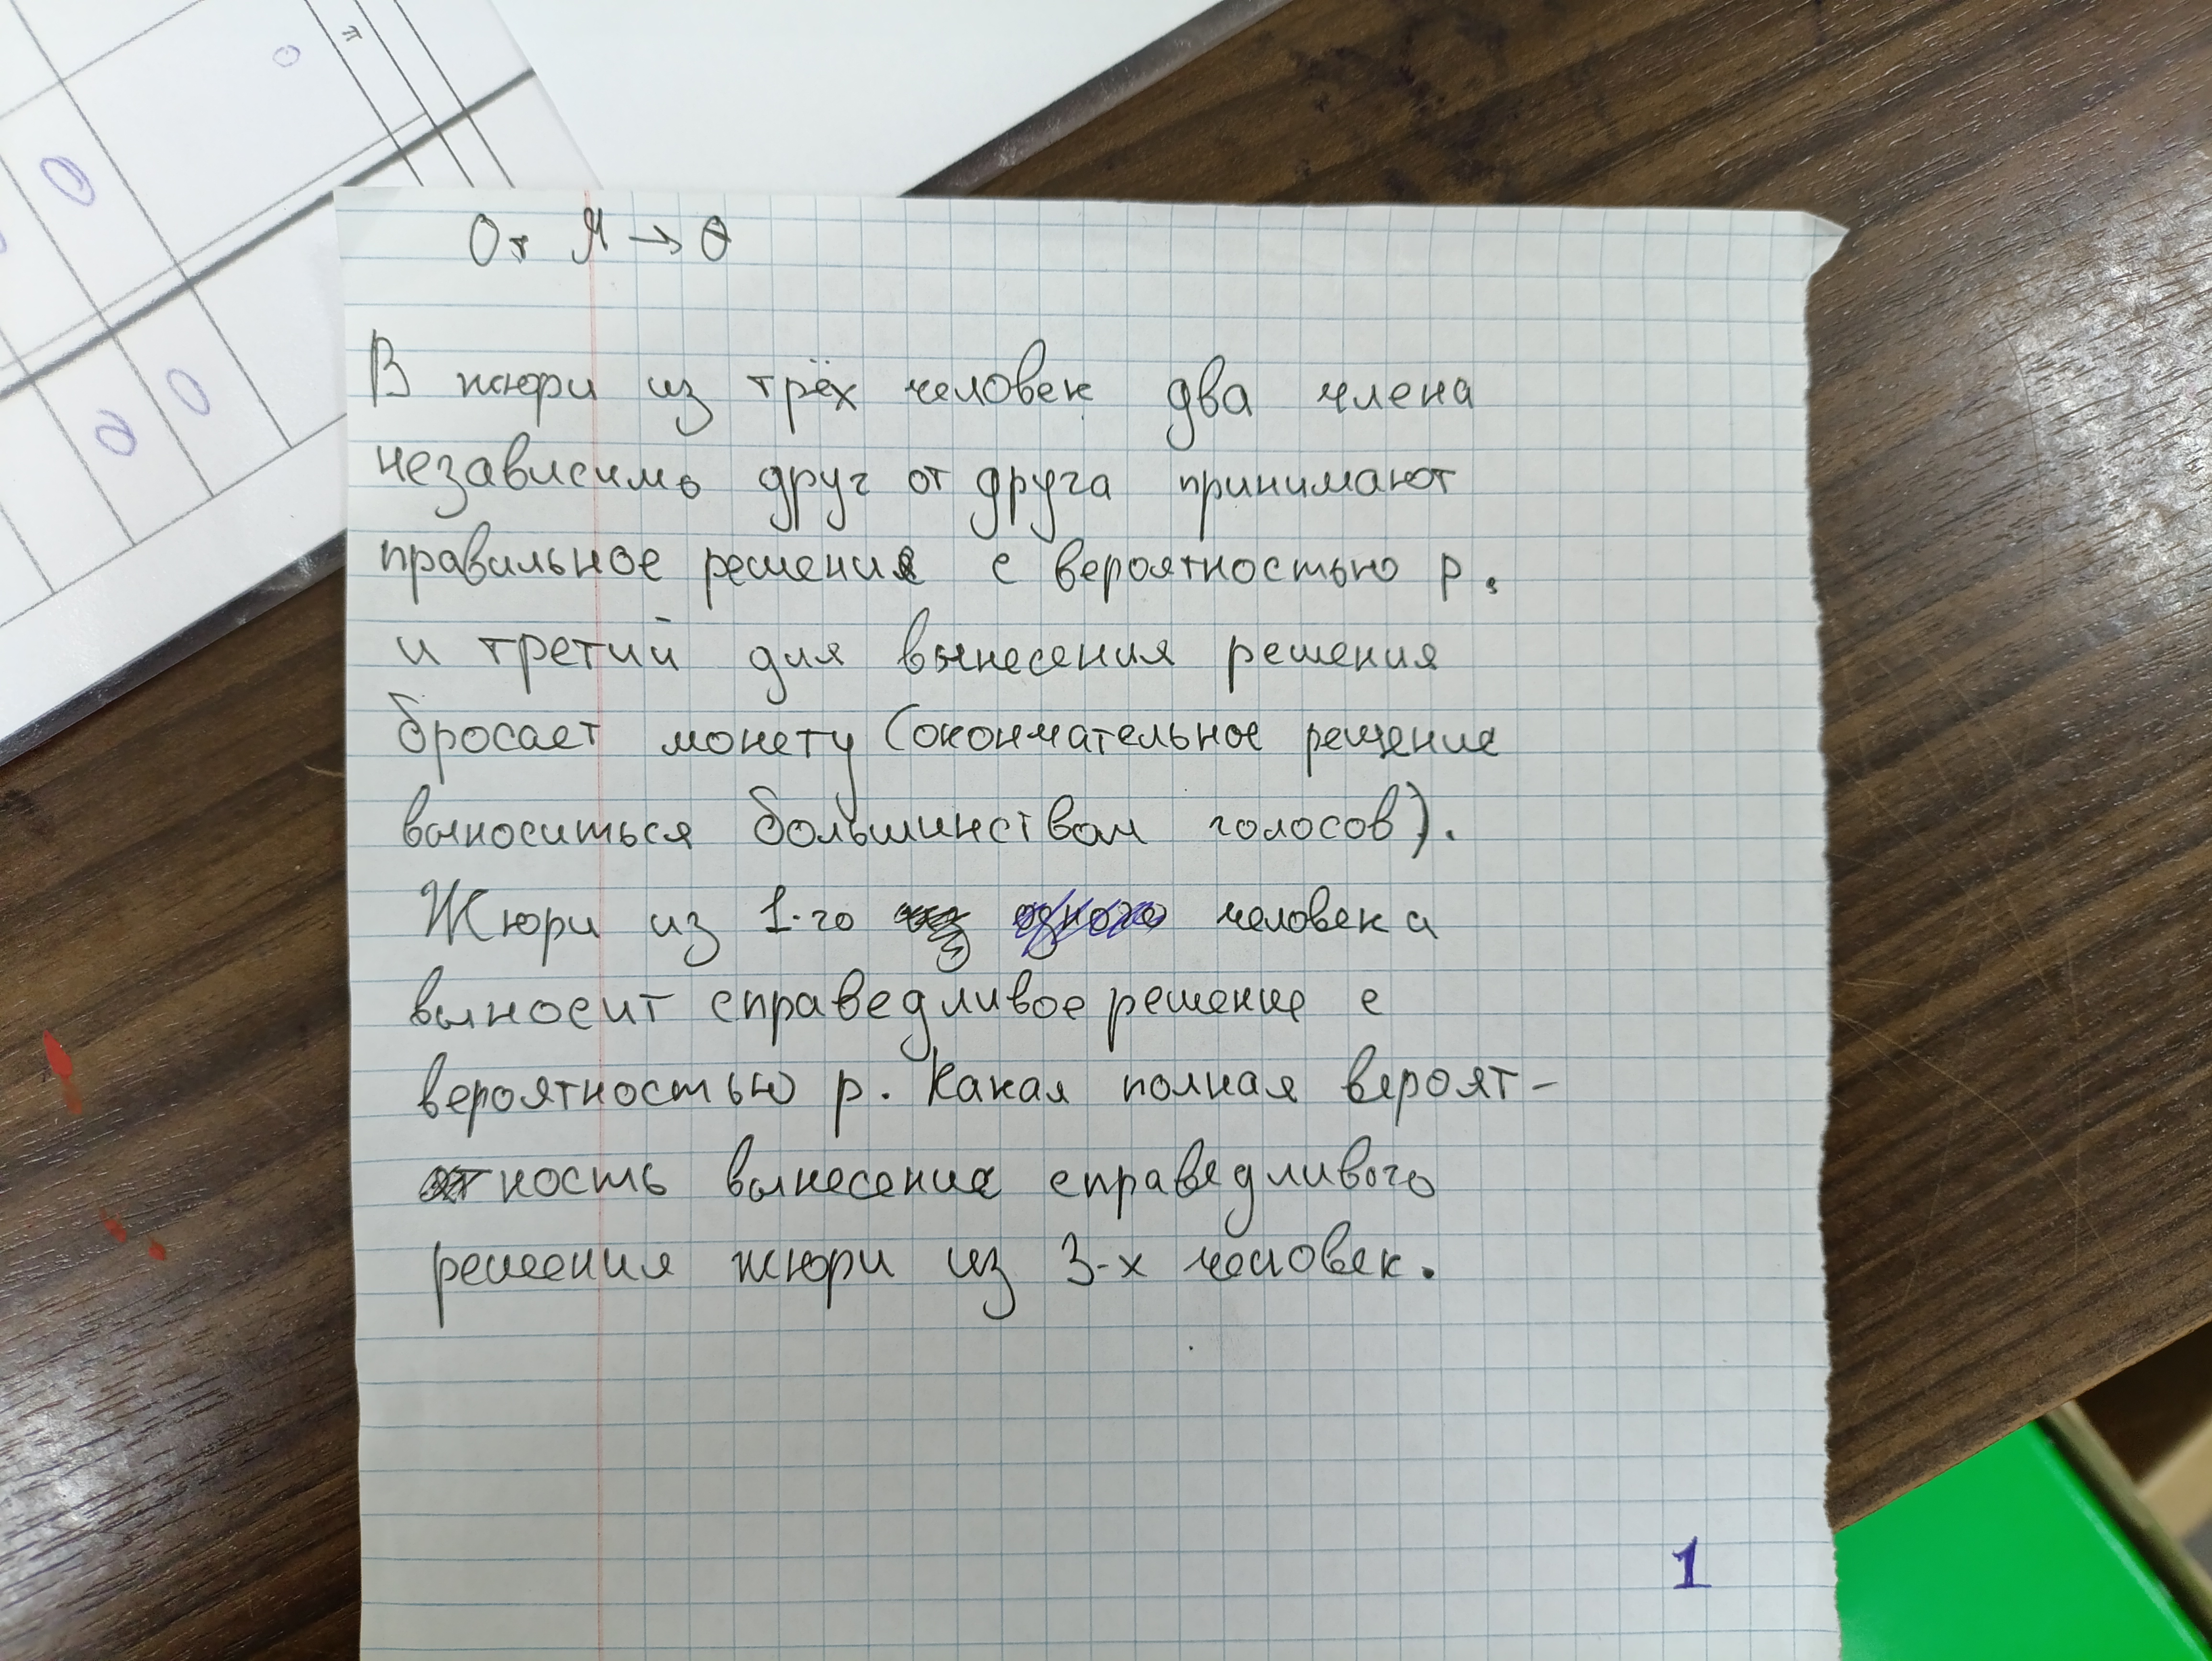 От Я → О
В жюри из трёх человек два члена
независимо друг от друга принимают
правильное решение с вероятностью p.
и третий для вынесения решения
бросает монету (окончательное решение
выноситься большинством голосов).
Жюри из 1-го человека
выносит справедливое решение с
вероятностью p. Какая полная вероят-
ность вынесение справедливого
решения жюри из 3-х человек.
1